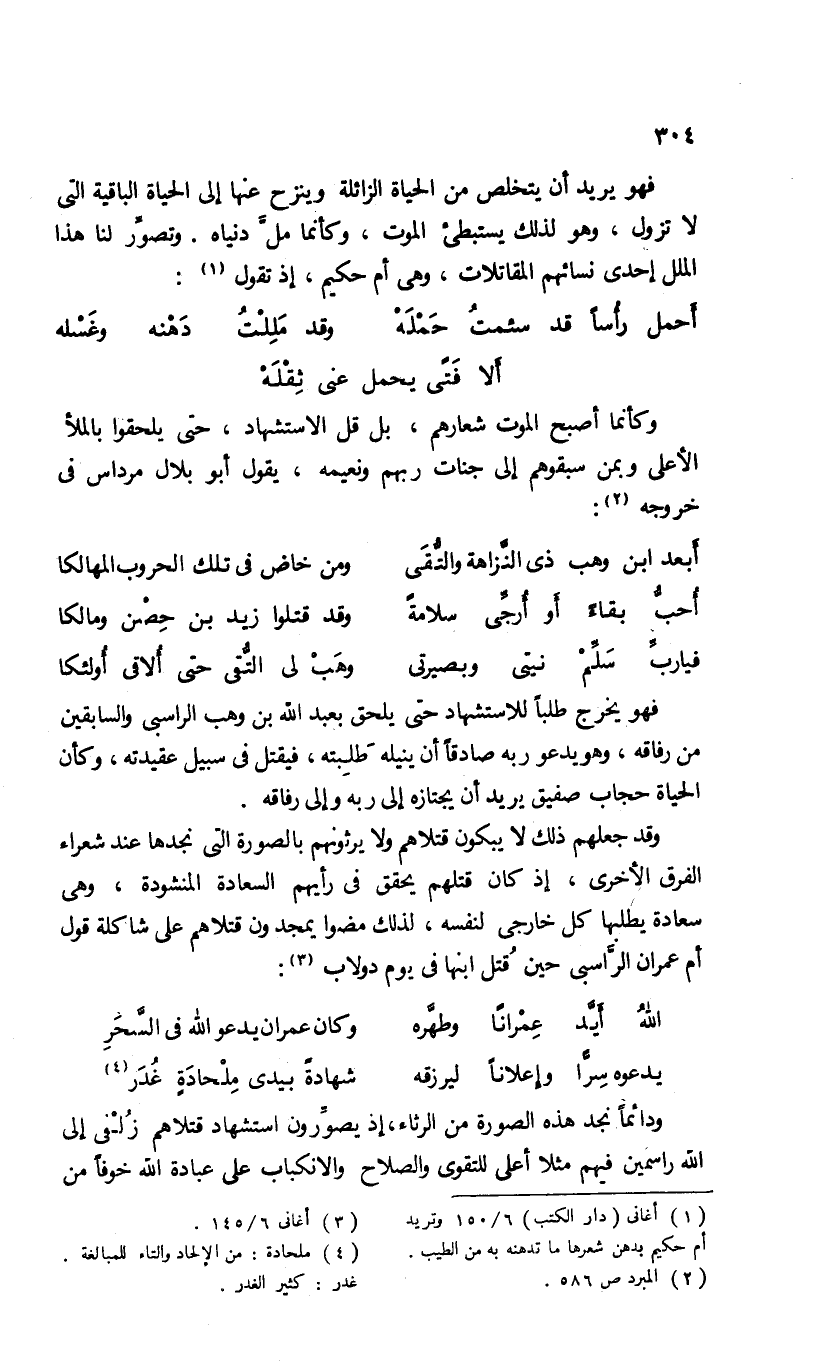 ٣٠٤
فهو يريد أن يتخلص من الحياة الزائلة وينزح عنها إلى الحياة الباقية التى
لا تزول ، وهو لذلك يستبطئ الموت ، وكأنما ملَّ دنياه . وتصوِّر لنا هذا
الملل إحدى نسائهم المقاتلات ، وهى أم حكيم ، إذ تقول (١) :
أَحمل رأْساً قد سئمتُ حَمْلَهْ وقد مَلِلْتُ دَهْنه وغَسْله
أَلا فَتًى يحمل عنى ثِقْلَهْ
وكأنما أصبح الموت شعارهم ، بل قل الاستشهاد ، حتى يلحقوا بالملأ
الأعلى وبمن سبقوهم إلى جنات ربهم ونعيمه ، يقول أبو بلال مرداس فى
خروجه (٢) :
أَبعد ابن وهب ذى النَّزاهة والتُّقَى ومن خاض فى تلك الحروب المهالكا
أُحبُّ بقاءً أَو أُرجِّى سلامةً وقد قتلوا زيد بن حِصْن ومالكا
فياربِّ سَلِّمْ نيتى وبصيرتى وهَبْ لى التُّقى حتى أُلاقى أُولئكا
فهو يخرج طلباً للاستشهاد حتى يلحق بعبد الله بن وهب الراسبى والسابقين
من رفاقه ، وهو يدعو ربه صادقاً أن ينيله طَلِبته ، فيقتل فى سبيل عقيدته ، وكأن
الحياة حجاب صفيق يريد أن يجتازه إلى ربه وإلى رفاقه .
وقد جعلهم ذلك لا يبكون قتلاهم ولا يرثونهم بالصورة التى نجدها عند شعراء
الفرق الأخرى ، إذ كان قتلهم يحقق فى رأيهم السعادة المنشودة ، وهى
سعادة يطلبها كل خارجى لنفسه ، لذلك مضوا يمجدون قتلاهم على شاكلة قول
أم عمران الرَّاسبى حين قُتل ابنها فى يوم دولاب (٣) :
اللهُ أَيَّد عِمْرانًا وطهَّره وكان عمران يدعو الله فى السَّحَرِ
يدعوه سِرًّا وإعلاناً ليرزقه شهادةً بيدى مِلْحادَةٍ غُدَر (٤)
ودائماً نجد هذه الصورة من الرثاء، إذ يصوِّرون استشهاد قتلاهم زُلْفى إلى
الله راسمين فيهم مثلا أعلى للتقوى والصلاح والانكباب على عبادة الله خوفاً من
(١) أغانى (دار الكتب) ٦/ ١٥٠ وتريد
أم حكيم بدهن شعرها ما تدهنه به من الطيب .
(٢) المبرد ص ٥٨٦ .
(٣) أغانى ٦/ ١٤٥ .
(٤) ملحادة : من الإلحاد والتاء للمبالغة .
غدر : كثير الغدر .